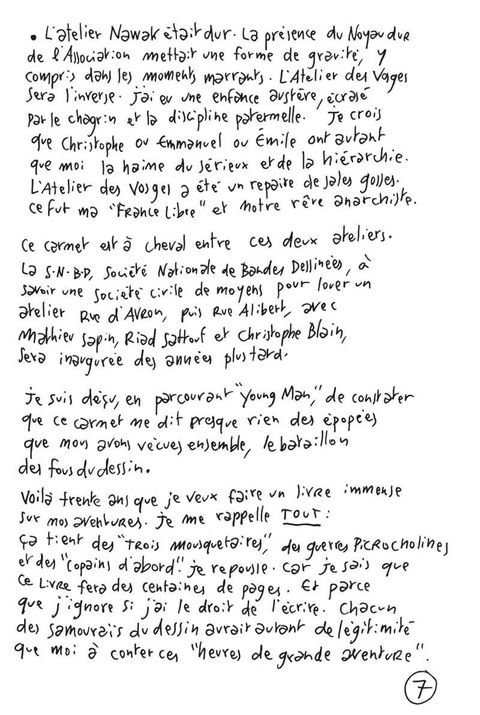 • L'atelier Nawak était dur. La présence du Noyau dur
de l'Association mettait une forme de gravité, y
compris dans les moments marrants. L'Atelier des Vosges
sera l'inverse. J'ai eu une enfance austère, écrasé
par le chagrin et la discipline paternelle. Je crois
que Christophe ou Emmanuel ou Émile ont autant
que moi la haine du sérieux et de la hiérarchie.
L'Atelier des Vosges a été un repaire de sales gosses.
ce fut ma "France Libre" et notre rêve anarchiste.
Ce carnet est à cheval entre ces deux ateliers.
La S.N.B.D, Société Nationale de Bandes Dessinées, à
savoir une société civile de moyens pour louer un
atelier Rue d'AVRON, puis Rue Alibert, avec
Mathieu Sapin, Riad Sattouf et Christophe Blain,
sera inaugurée des années plus tard.
Je suis déçu, en parcourant "Young Man," de constater
que ce carnet ne dit presque rien des épopées
que nous avons vécues ensemble, le bataillon
des fous du dessin.
Voilà trente ans que je veux faire un livre immense
sur nos aventures. Je me rappelle TOUT :
ça tient des "Trois mousquetaires", des guerres PICROCHOLINES
et des "copains d'abord". Je repousse. Car je sais que
ce LIVRE fera des centaines de pages. Et parce
que j'ignore si j'ai le droit de l'écrire. Chacun
des samouraïs du dessin aurait autant de légitimité
que moi à conter ces "heures de grande aventure".
7